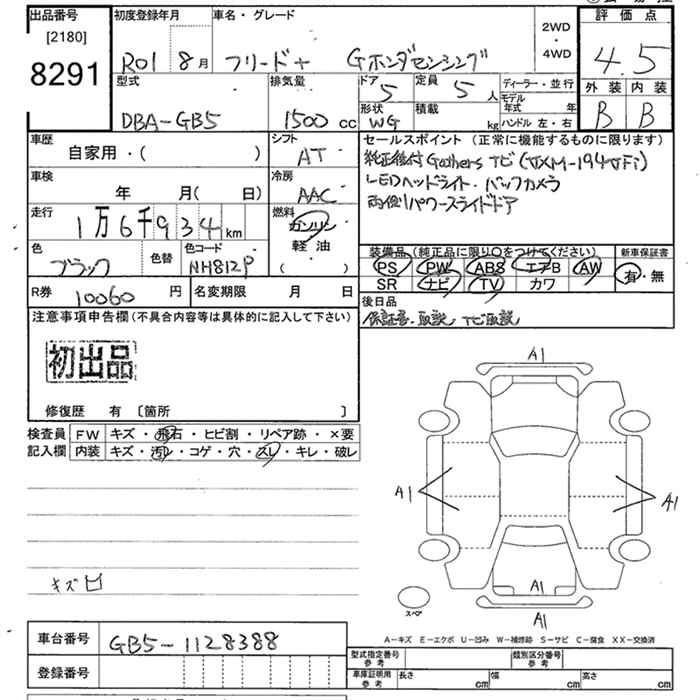 出品番号 初度登録年月 車名・グレード 2WD・4WD 評価点
[2180]
8291 R01 8月 フリード+ Gホンダセンシング 4.5
型式 排気量 ドア 5 定員 5人 ディーラー・並行 外装 内装
DBA-GB5 1500cc 形状 WG 積載 kg モデル年式 年 ハンドル 左・右 B B
車歴 シフト セールスポイント (正常に機能するものに限ります)
自家用・( ) AT 純正後付 Gathers ナビ (VXM-194VFi)
車検 冷房 LEDヘッドライト・バックカメラ
年 月( 日) AAC 両側パワースライドドア
走行 1万6千934km 燃料 ガソリン 軽油 ( )
色 ブラック 色替 色コード NH812P
装備品 (純正品に限り○をつけてください) 新車保証書
PS PW ABS エアB AW 有・無
SR ナビ TV カワ
R券 10060円 名変期限 月 日 後日品
注意事項申告欄(不具合内容等は具体的に記入して下さい) 保証書、取説、ナビ取説
初出品
修復歴 有 [箇所 ]
検査員 FW キズ・飛石・ヒビ割・リペア跡・×要
記入欄 内装 キズ・汚レ・コゲ・穴・スレ・キレ・破レ
A1
A1
A1
A1
A1
スペア
キズ凹
A-キズ E-エクボ U-凹み W-補修跡 S-サビ C-腐食 XX-交換済
車台番号 GB5-1128388
型式指定番号 参考 類別区分番号 参考
登録番号 車庫証明用 参考 長さ cm 幅 cm 高さ cm